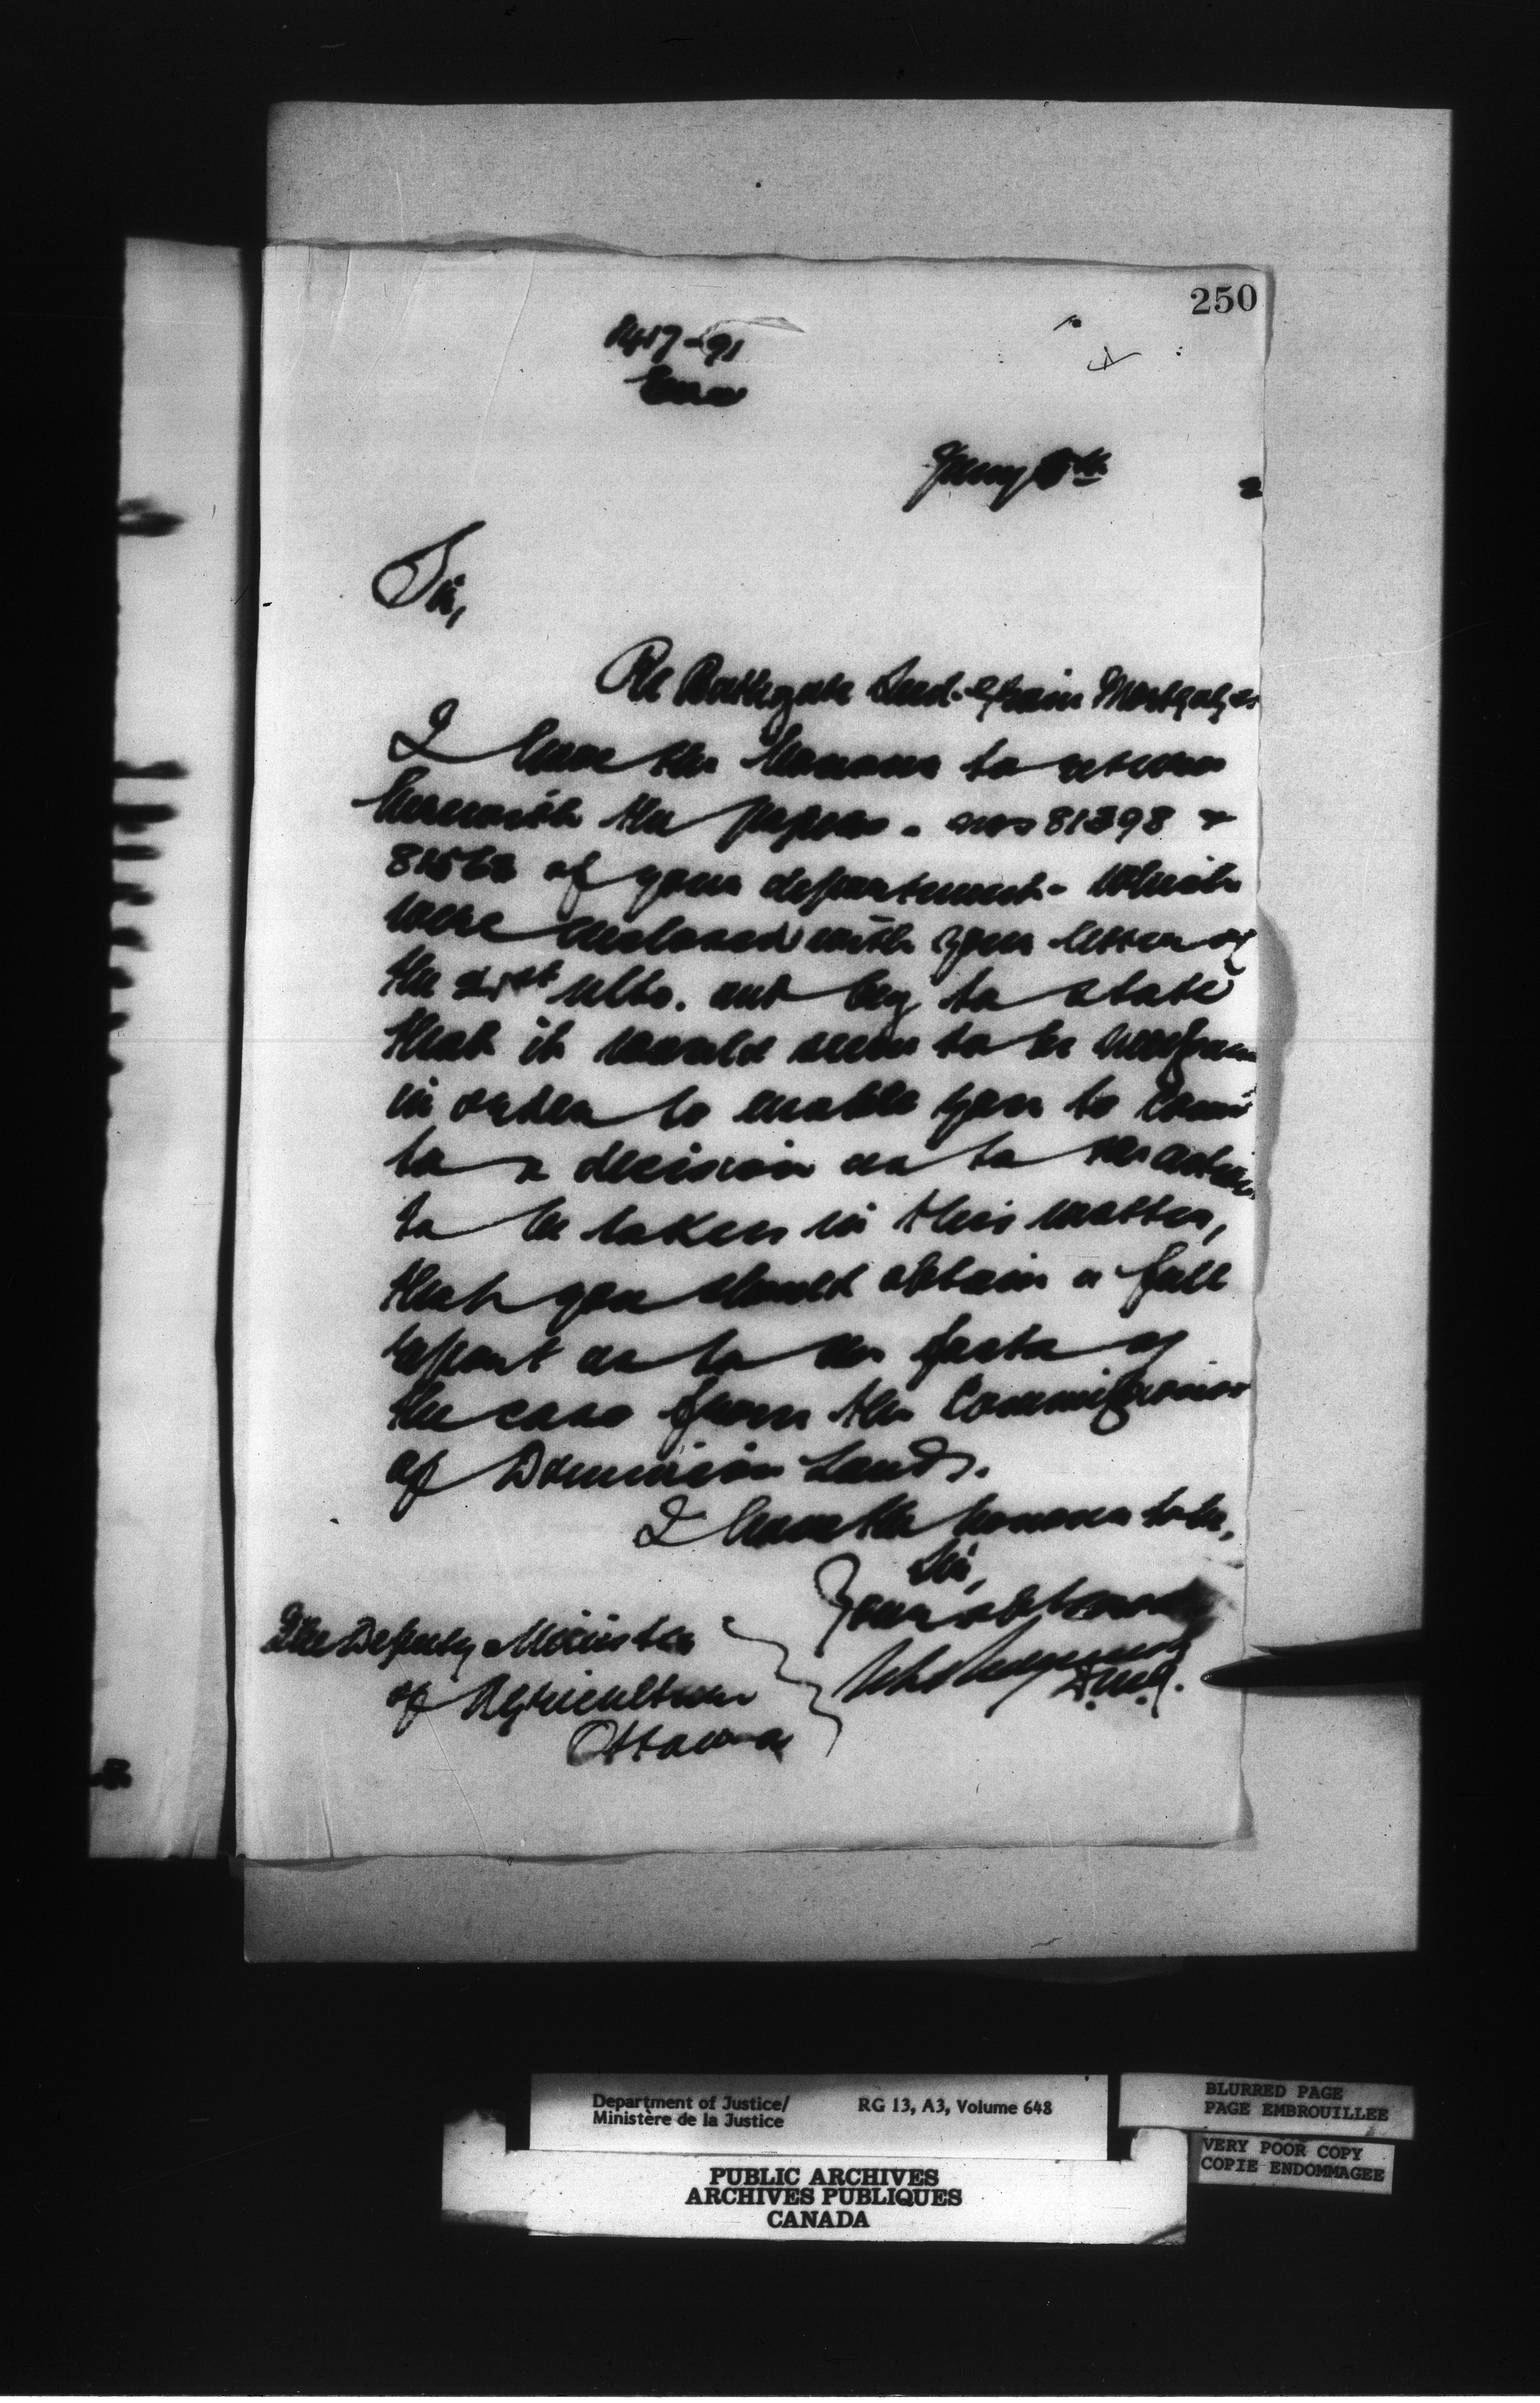 250
1417-91
Jany 5th
2
Sir,
Re Bathgate Seed-Grain Mortgages
I have the honour to return
herewith the papers - nos 81398 &
of your department - which
were enclosed with your letter of
the 21st ulto. and beg to state
that it would seem to be necessary
in order to enable you to come
to a decision as to the action
to be taken in this matter,
that you should obtain a full
report as to the facts of
the case from the Commissioner
of Dominion Lands.
I have the honour to be,
Sir,
Your obt servant
D.M.J.
The Deputy Minister
of Agriculture
Ottawa
Department of Justice/
Ministère de la Justice
RG 13, A3, Volume 648
BLURRED PAGE
PAGE EMBROUILLEE
VERY POOR COPY
COPIE ENDOMMAGEE
PUBLIC ARCHIVES
ARCHIVES PUBLIQUES
CANADA